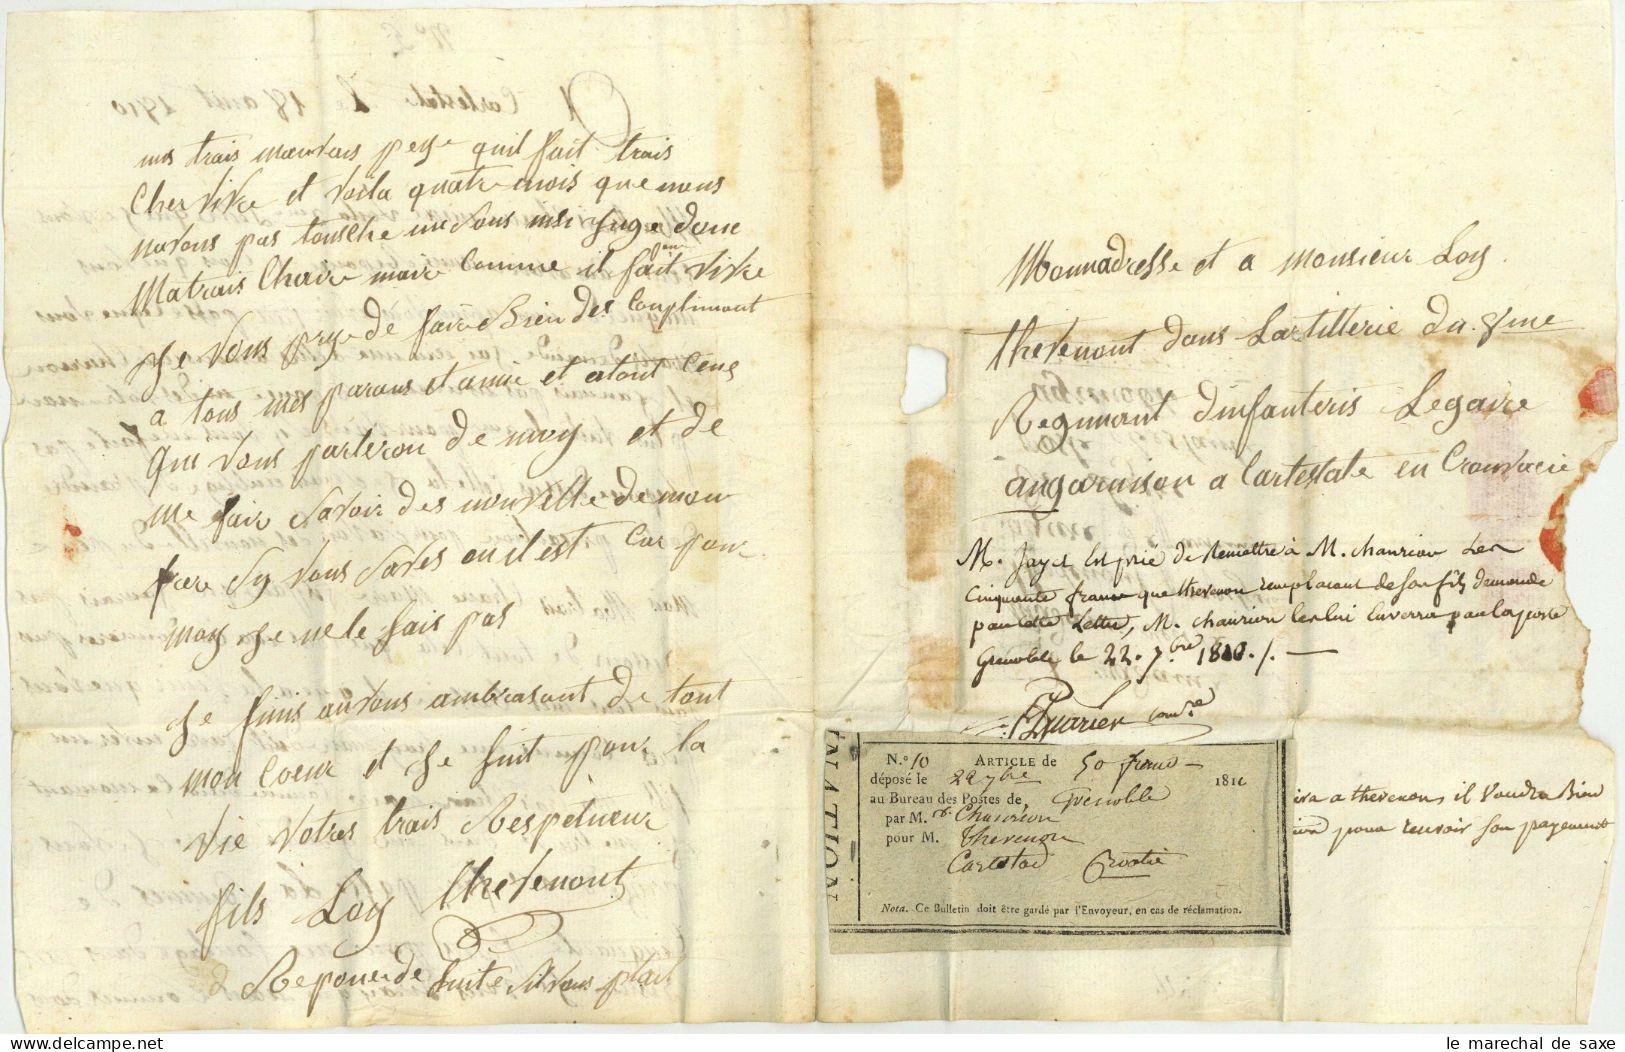 mes trais mauvais peye quil fait trais
Cher vivre et voila quatre mois que nous
navons pas tousche un sous insi juge donc
Matrais Chaire maire comme il fait pour vivre
Je vous prye de faire Bien des Conpliment
a tous mes parans et amie et atout Ceus
que vous parleron de moy et de
me faire savoir des nouvelle de mon
frere sy vous saves ou il est Car pour
moy je ne le sais pas
je finis an vous ambrasant de tout
mon Coeur et je suit pour la
vie votres trais Respetueux
fils Loy thevenont
Reponce de suite sil vous plait
Monnadresse et a monsieur Loy
thevenont dans Lartillerie du 8me
Regimant dinfanteris Legaire
angarnison a Carlestate en Crouvacie
M. Jayet est prié de Remettre à M. chaurion Les
Cinquante francs que thevenon remplacant de son fils demande
par cette Lettre, M. chaurion les lui Enverra par la poste
Grenoble le 22. 7.bre 1810./. —
N.o 10 Article de 50 francs —
déposé le 22 7bre 181
au Bureau des Postes de Grenoble
par M.r Chaurion
pour M. Thevenon
Carlstad Croatie
Nota. Ce Bulletin doit être gardé par l'Envoyeur, en cas de réclamation.
NATION
a thevenon, il voudra Bien
pour recevoir son payement
le marechal de saxe